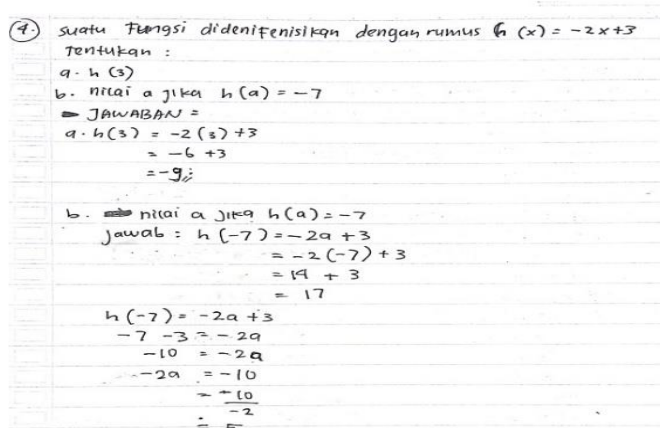 4. suatu Fungsi didenifenisikan dengan rumus h (x) = -2x+3
Tentukan :
a. h (3)
b. nilai a jika h(a) = -7
JAWABAN =
a. h(3) = -2 (3) +3
= -6 +3
= -9
b. nilai a jika h(a) = -7
Jawab : h (-7) = -2a + 3
= -2 (-7) + 3
= 14 + 3
= 17
h (-7) = -2a +3
-7 -3 = -2a
-10 = -2a
-2a = -10
= -10
-2
= 5